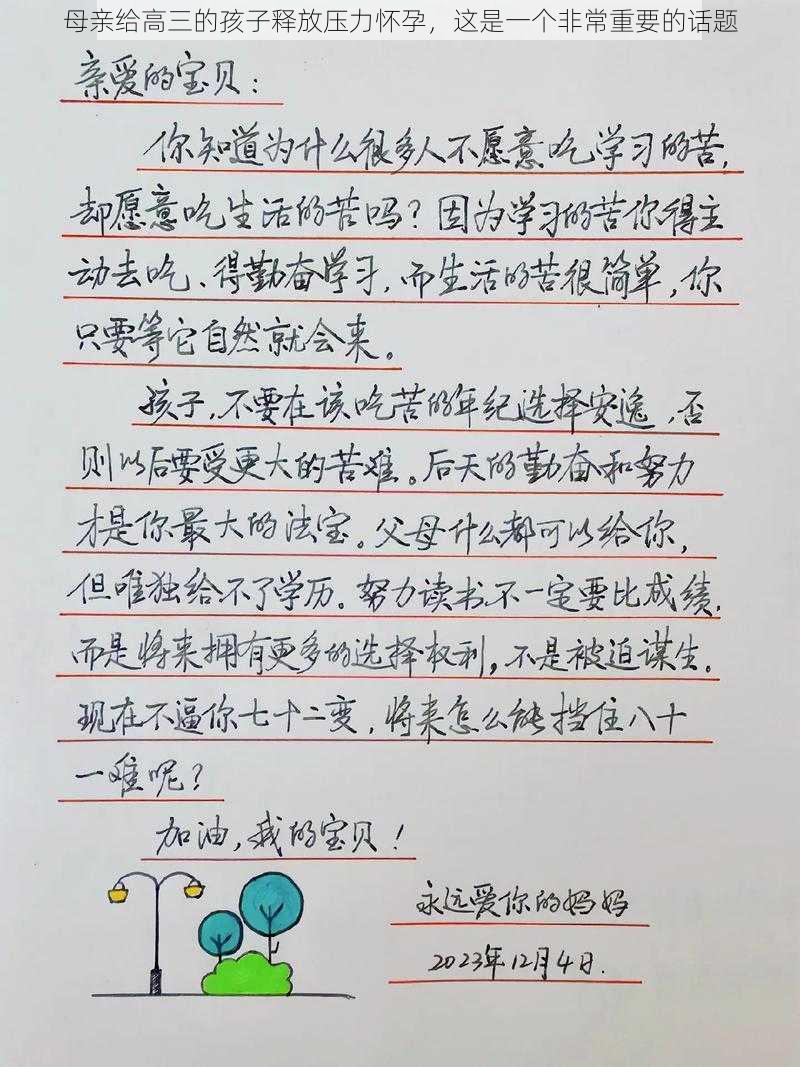 母亲给高三的孩子释放压力怀孕，这是一个非常重要的话题
亲爱的宝贝：
你知道为什么很多人不愿意吃学习的苦，
却愿意吃生活的苦吗？因为学习的苦你得主
动去吃、得勤奋学习，而生活的苦很简单，你
只要等它自然就会来。
孩子，不要在该吃苦的年纪选择安逸，否
则以后要受更大的苦难。后天的勤奋和努力
才是你最大的法宝。父母什么都可以给你，
但唯独给不了学历。努力读书，不一定要比成绩，
而是将来拥有更多的选择权利，不是被迫谋生。
现在不逼你七十二变，将来怎么能挡住八十
一难呢？
加油，我的宝贝！
永远爱你的妈妈
2023年12月4日.